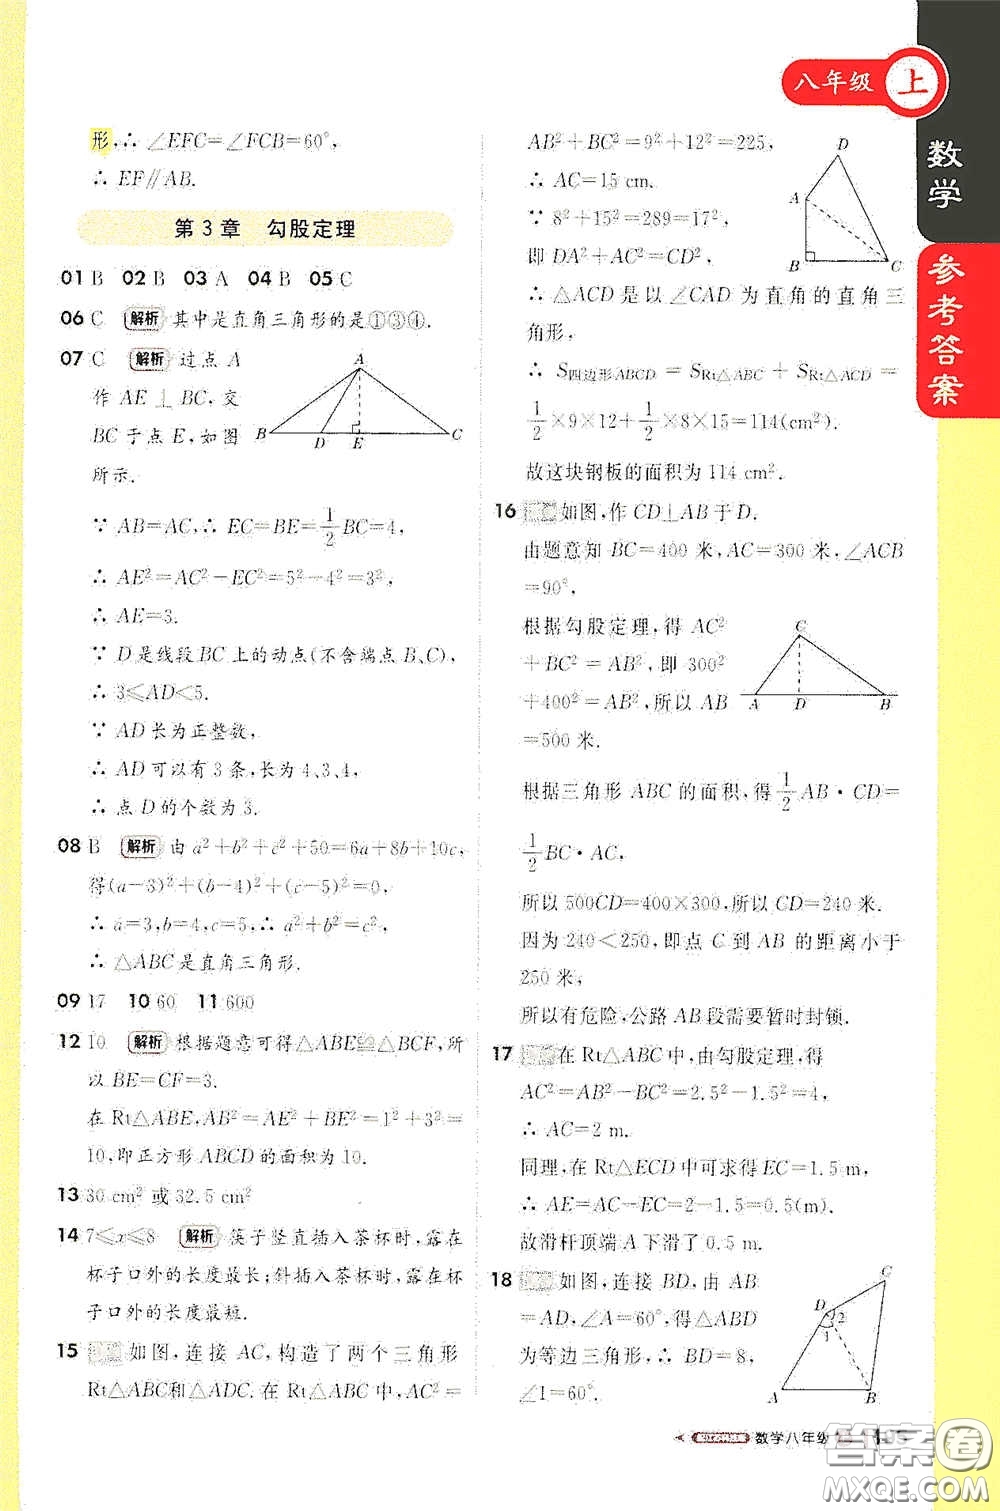 八年级 上
数学
参考答案
形,∴ ∠EFC=∠FCB=60°,
∴ EF∥AB.
第 3 章 勾股定理
01 B 02 B 03 A 04 B 05 C
06 C 解析 其中是直角三角形的是①③④.
07 C 解析 过点 A
作 AE ⊥ BC, 交
BC 于点 E, 如图
所示.
A
B D E C
∵ AB=AC,∴ EC=BE=1/2BC=4,
∴ AE²=AC²-EC²=5²-4²=3²,
∴ AE=3.
∵ D是线段BC上的动点(不含端点B、C),
∴ 3≤AD<5.
∵ AD长为正整数,
∴ AD可以有3条,长为4、3、4,
∴ 点D的个数为3.
08 B 解析 由a²+b²+c²+50=6a+8b+10c,
得(a-3)²+(b-4)²+(c-5)²=0,
∴ a=3,b=4,c=5,∴ a²+b²=c²,
∴ △ABC是直角三角形.
09 17 10 60 11 600
12 10 解析 根据题意可得△ABE≌△BCF,所
以BE=CF=3.
在Rt△ABE,AB²=AE²+BE²=1²+3²=
10,即正方形ABCD的面积为10.
13 30 cm² 或 32.5 cm²
14 7≤x≤8 解析 筷子竖直插入茶杯时,露在
杯子口外的长度最长;斜插入茶杯时,露在杯
子口外的长度最短.
15 如图,连接AC,构造了两个三角形
Rt△ABC和△ADC.在Rt△ABC中,AC²=
AB²+BC²=9²+12²=225,
∴ AC=15 cm.
∵ 8²+15²=289=17²,
即 DA²+AC²=CD²,
D
A
B C
∴ △ACD是以∠CAD为直角的直角三
角形,
∴ S四边形ABCD = SRt△ABC + SRt△DAC =
1/2×9×12+1/2×8×15=114(cm²).
故这块钢板的面积为114 cm².
16 如图,作CD⊥AB于D.
由题意知BC=400米,AC=300米,∠ACB
=90°,
根据勾股定理,得AC²
+BC²=AB²,即300²
+400²=AB²,所以AB
=500米.
C
A D B
根据三角形ABC的面积,得1/2AB·CD=
1/2BC·AC,
所以500CD=400×300,所以CD=240米.
因为240<250,即点C到AB的距离小于
250米,
所以有危险,公路AB段需要暂时封锁.
17 在Rt△ABC中,由勾股定理,得
AC²=AB²-BC²=2.5²-1.5²=4,
∴ AC=2 m.
同理,在Rt△ECD中可求得EC=1.5 m,
∴ AE=AC-EC=2-1.5=0.5(m).
故滑杆顶端A下滑了0.5 m.
18 如图,连接BD,由AB
=AD,∠A=60°,得△ABD
为等边三角形,∴ BD=8,
∠1=60°.
C
D 2
1
A B
数学八年级
答案圈
MXQE.COM